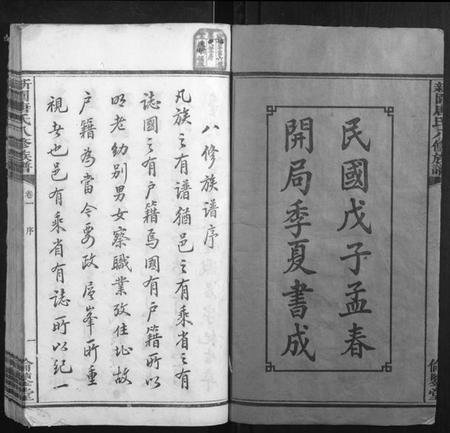 民國戊子孟春
開局季夏書成
八修族譜序
凡族之有譜猶邑之有乘省之有
誌國之有户籍焉國有户籍所以
明老幼别男女察職業改住址故
户籍為當今要政層峯所重
視者也邑有乘省有誌所以紀一
氏八修族譜
卷一
序
一